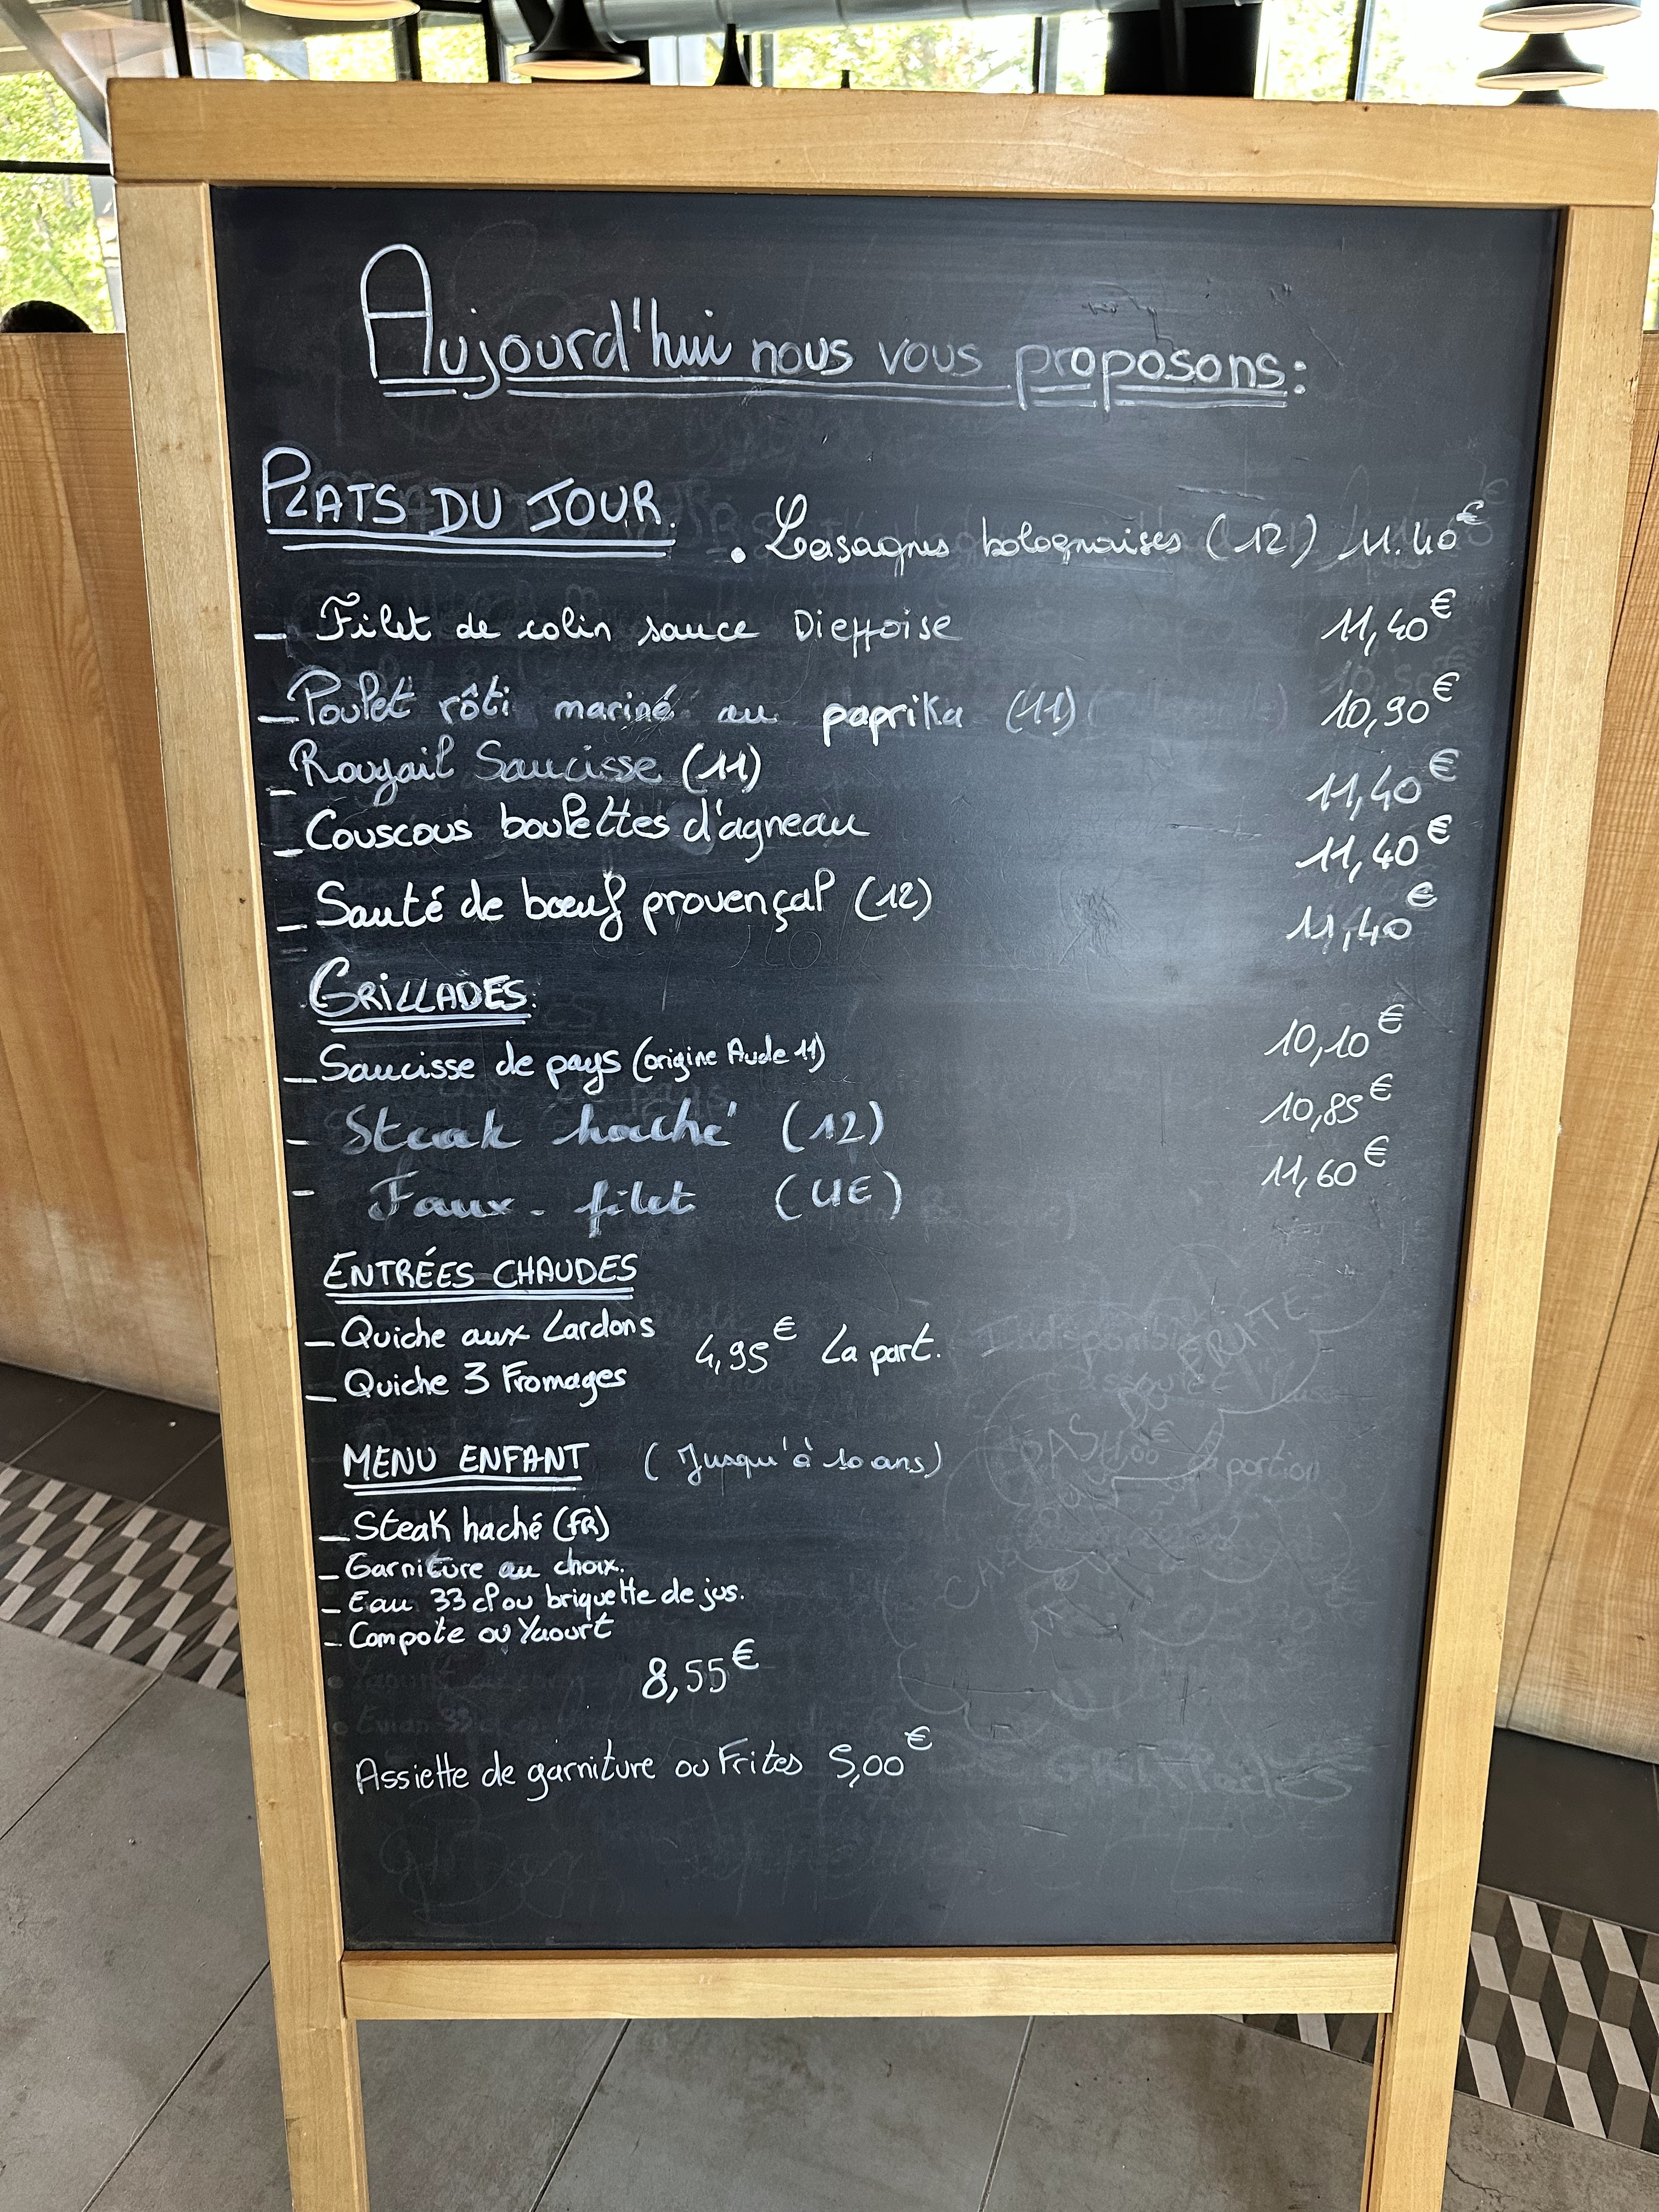 Aujourd'hui nous vous proposons:
PLATS DU JOUR.
. Lasagnes bolognaises (12) 11.40€
_ Filet de colin sauce Dieppoise 11,40€
_ Poulet rôti mariné au paprika (11) 10,90€
_ Rougail Saucisse (11) 11,40€
_ Couscous boulettes d'agneau 11,40€
_ Sauté de bœuf provençal (12) 11,40€
GRILLADES.
_ Saucisse de pays (origine Aude 11) 10,10€
_ Steak haché (12) 10,85€
- Faux-filet (UE) 11,60€
ENTRÉES CHAUDES
_ Quiche aux Lardons
4,95€ La part.
_ Quiche 3 Fromages
MENU ENFANT (Jusqu'à 10 ans)
_ Steak haché (FR)
_ Garniture au choix.
_ Eau 33 cl ou briquette de jus.
_ Compote ou Yaourt
8,55€
Assiette de garniture ou Frites 5,00€